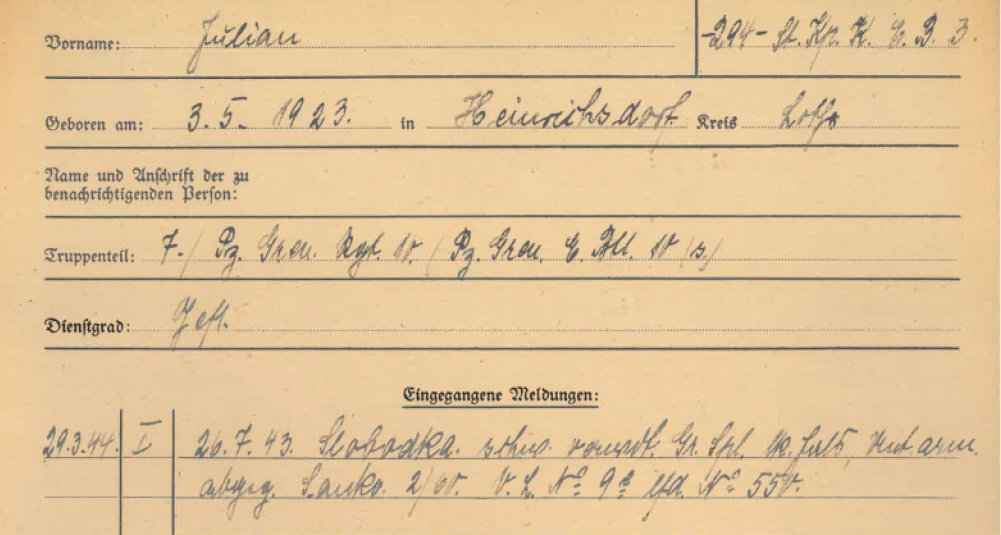 Vorname: Julian
-294- St. Kp. K. E. B. 3.
Geboren am: 3. 5. 1923. in Heinrichsdorf Kreis
Name und Anschrift der zu
benachrichtigenden Person:
Truppenteil: 7./ Pz. Gren. Rgt. 10. / Pz. Gren. E. Btl. 10 /s./
Dienstgrad: Gefr.
Eingegangene Meldungen:
29.3.44. I 26.7.43. Slobodka. schw. verwdt. Gr. Spl. Hals, arm.
abgeg. Sanko. 2/60. V. L. No 9 lfd. No 550.